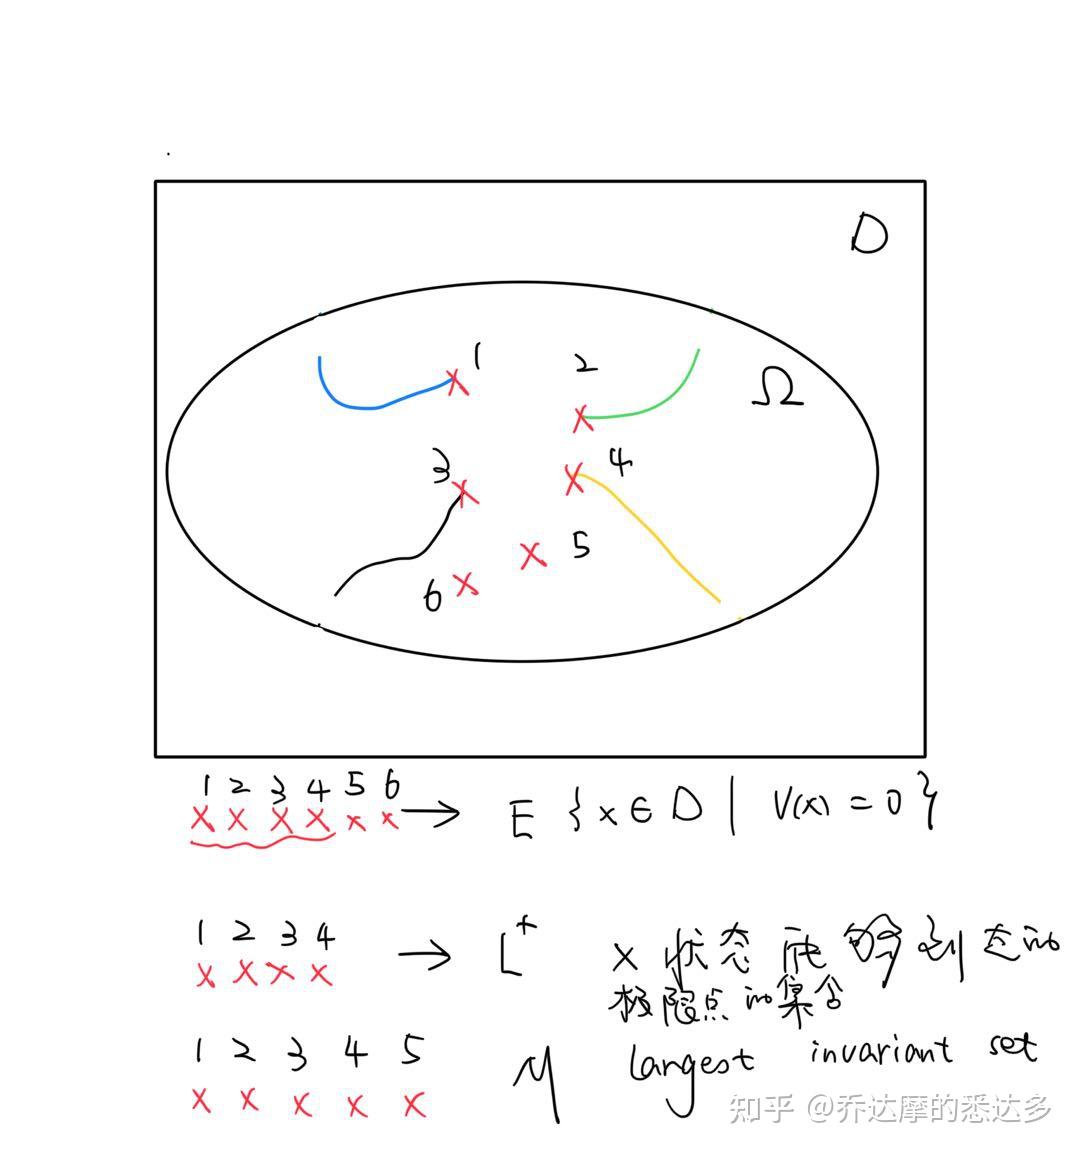 D
1
2
Ω
3
4
5
6
1 2 3 4 5 6
x x x x x x → E {x ∈ D | V(x) = 0}
1 2 3 4
x x x x → L⁺ x 状态能够到达的
极限点的集合
1 2 3 4 5
x x x x x M largest invariant set
知乎 @乔达摩的悉达多